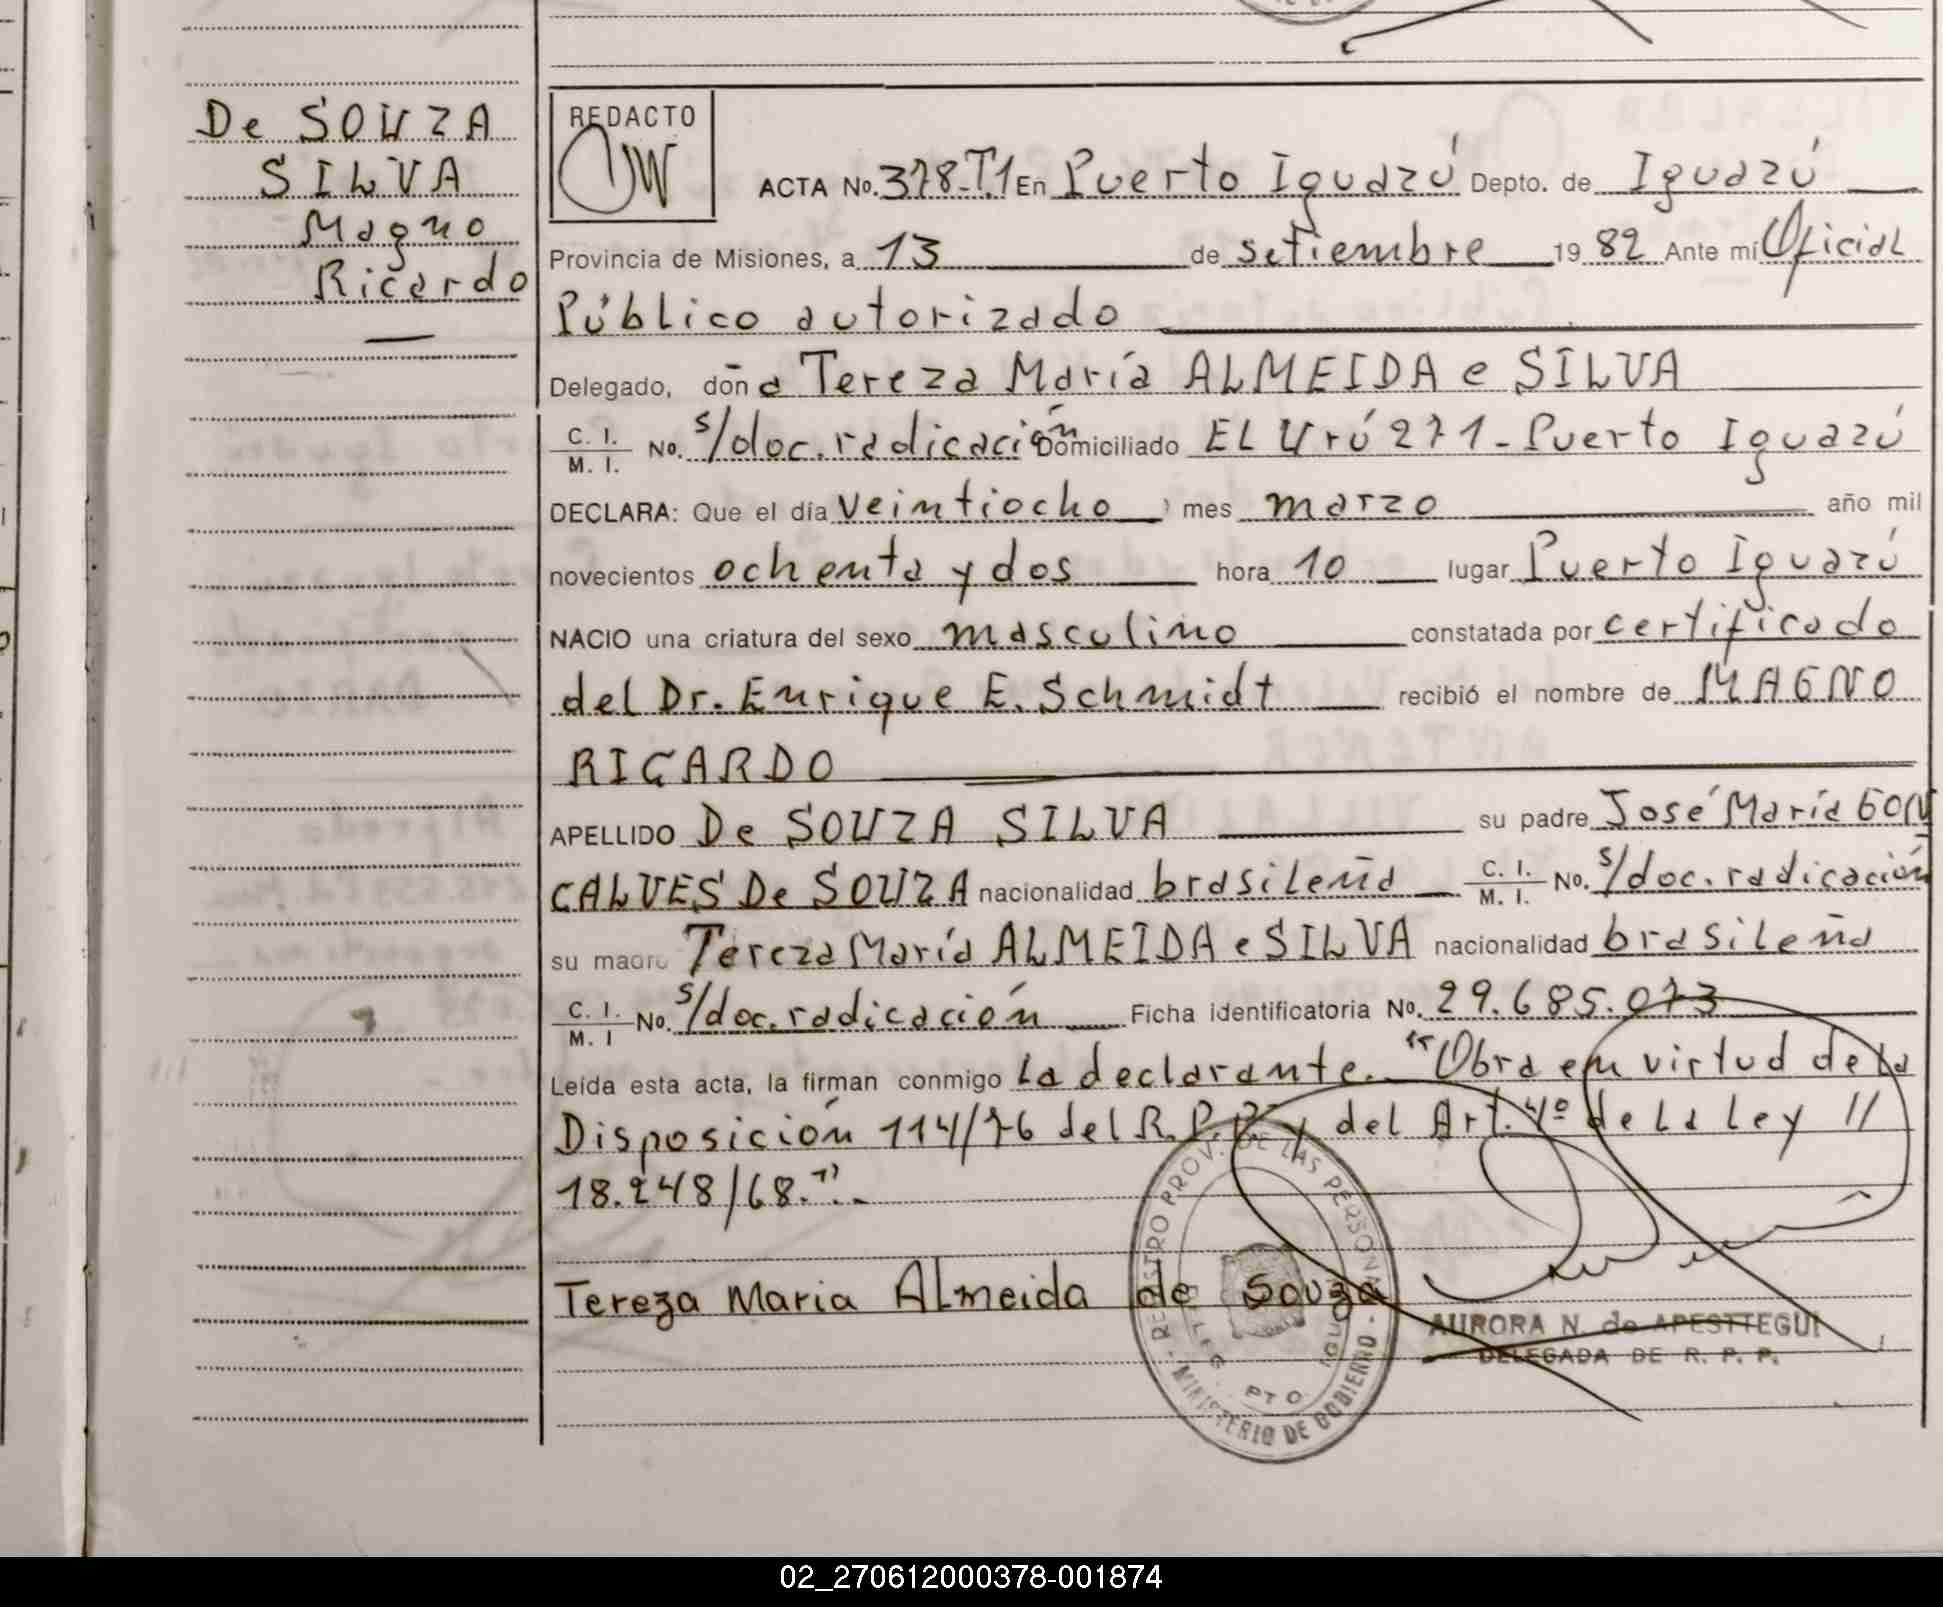 De SOUZA
SILVA
Magno
Ricardo
REDACTO
ACTA No. 378-T.1 En Puerto Iguazú Depto. de Iguazú
Provincia de Misiones, a 13 de setiembre 1982 Ante mí Oficial
Público autorizado
Delegado, doña Tereza María ALMEIDA e SILVA
C. I. / M. I. No. s/doc. radicación Domiciliado EL Urú 271 - Puerto Iguazú
DECLARA: Que el día veintiocho, mes marzo año mil
novecientos ochenta y dos hora 10 lugar Puerto Iguazú
NACIO una criatura del sexo masculino constatada por certificado
del Dr. Enrique E. Schmidt recibió el nombre de MAGNO
RICARDO
APELLIDO De SOUZA SILVA su padre José María GON
CALVES De SOUZA nacionalidad brasileña C. I. / M. I. No. s/doc. radicación
su madre Tereza María ALMEIDA e SILVA nacionalidad brasileña
C. I. / M. I No. s/doc. radicación Ficha identificatoria No. 29.685.073
Leída esta acta, la firman conmigo la declarante. "Obra en virtud de la
Disposición 114/76 del R.P.P. y del Art. 4º de la Ley //
18.248/68.".-
Tereza Maria Almeida de Souza
REGISTRO PROV. DE LAS PERSONAS - MINISTERIO DE GOBIERNO -
PTO. IGUAZU
AURORA N. de APESTTEGUI
DELEGADA DE R. P. P.
02_270612000378-001874